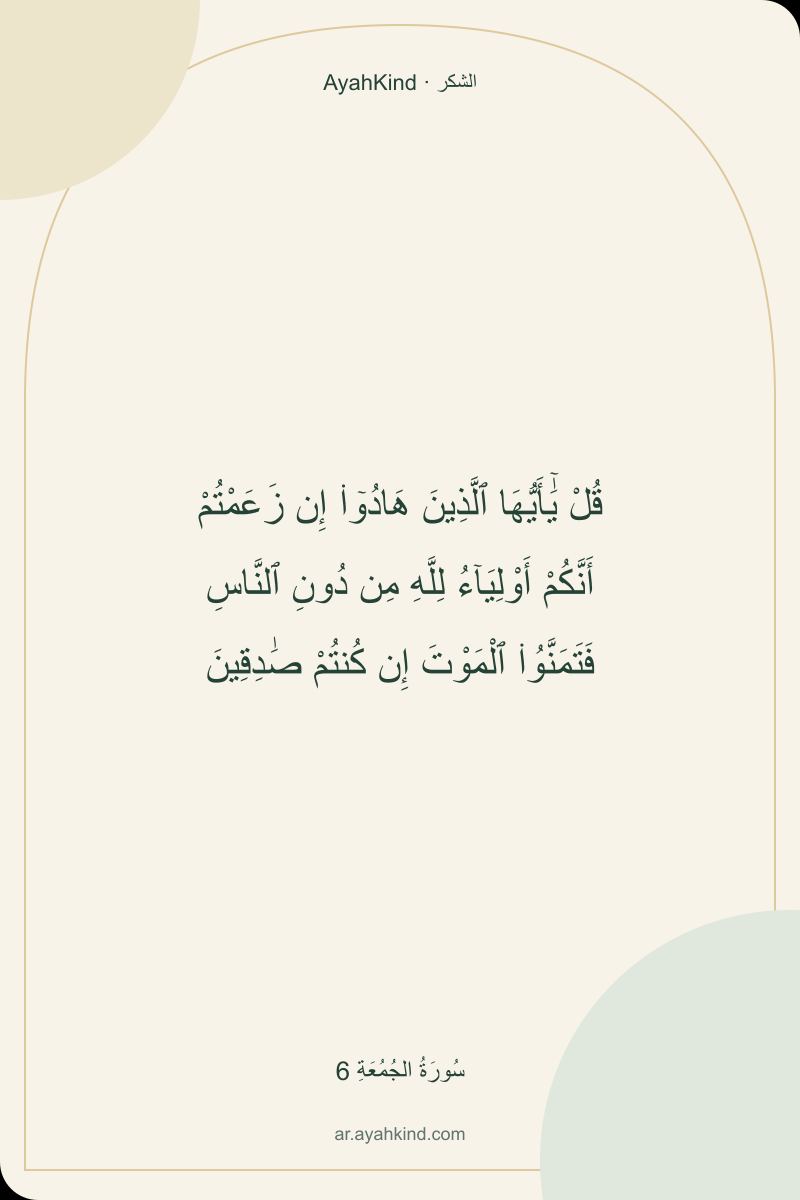 AyahKind · الشكر
قُلْ يَٰٓأَيُّهَا ٱلَّذِينَ هَادُوٓا۟ إِن زَعَمْتُمْ
أَنَّكُمْ أَوْلِيَآءُ لِلَّهِ مِن دُونِ ٱلنَّاسِ
فَتَمَنَّوُا۟ ٱلْمَوْتَ إِن كُنتُمْ صَٰدِقِينَ
سُورَةُ الجُمُعَةِ 6
ar.ayahkind.com